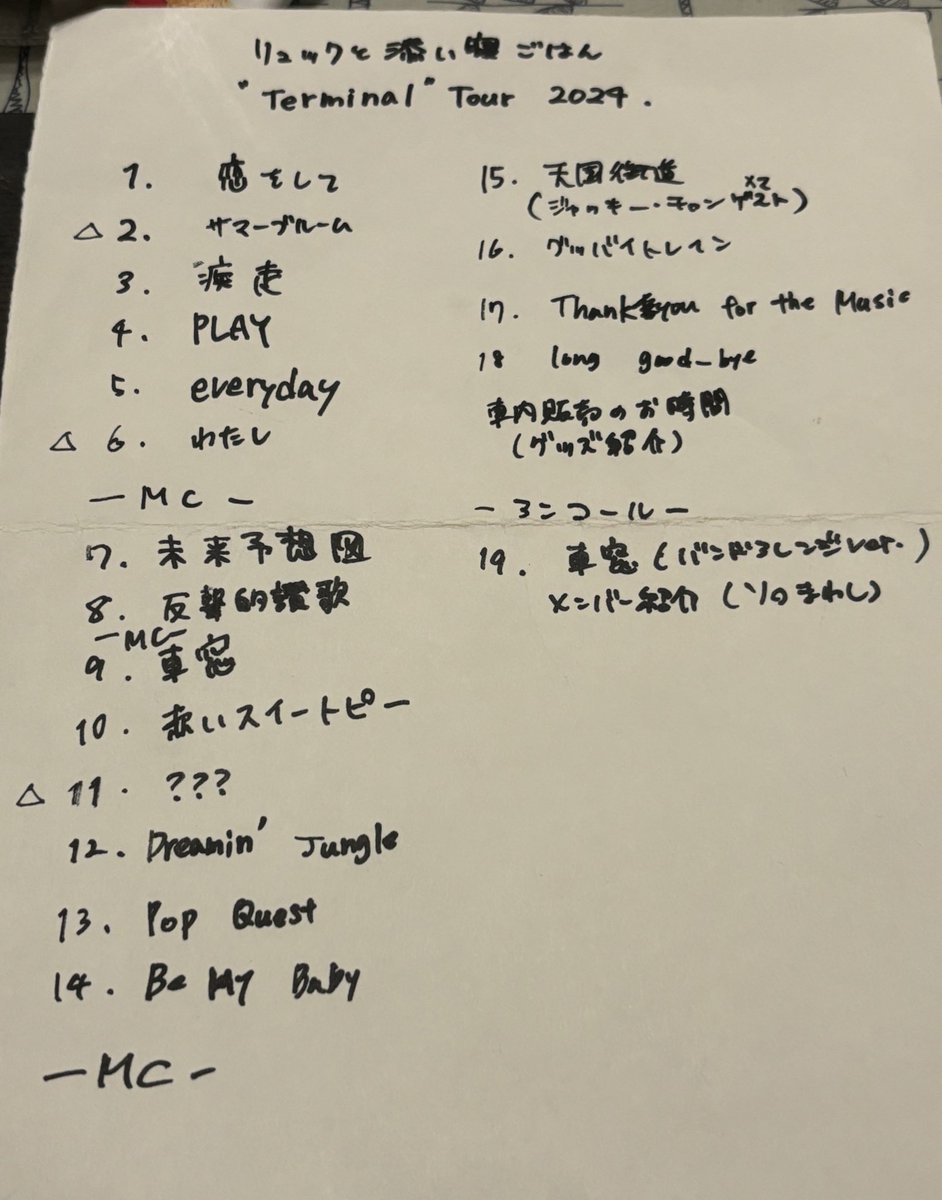 リュックと添い寝ごはん
"Terminal" Tour 2024.
1. 恋をして
△ 2. サマーブルーム
3. 疾走
4. PLAY
5. everyday
△ 6. わたし
ーMCー
7. 未来予想図
8. 反撃的讃歌
ーMCー
9. 車窓
10. 赤いスイートピー
△ 11. ???
12. Dreamin' Jungle
13. Pop Quest
14. Be My Baby
ーMCー
15. 天国街道
(ジャッキー・チャンゲスト)
16. グッバイトレイン
17. Thank you for the Music
18 long good-bye
車内販売のお時間
(グッズ紹介)
ーアンコールー
19. 車窓 (バンドアレンジver.)
メンバー紹介 (ソロまわし)